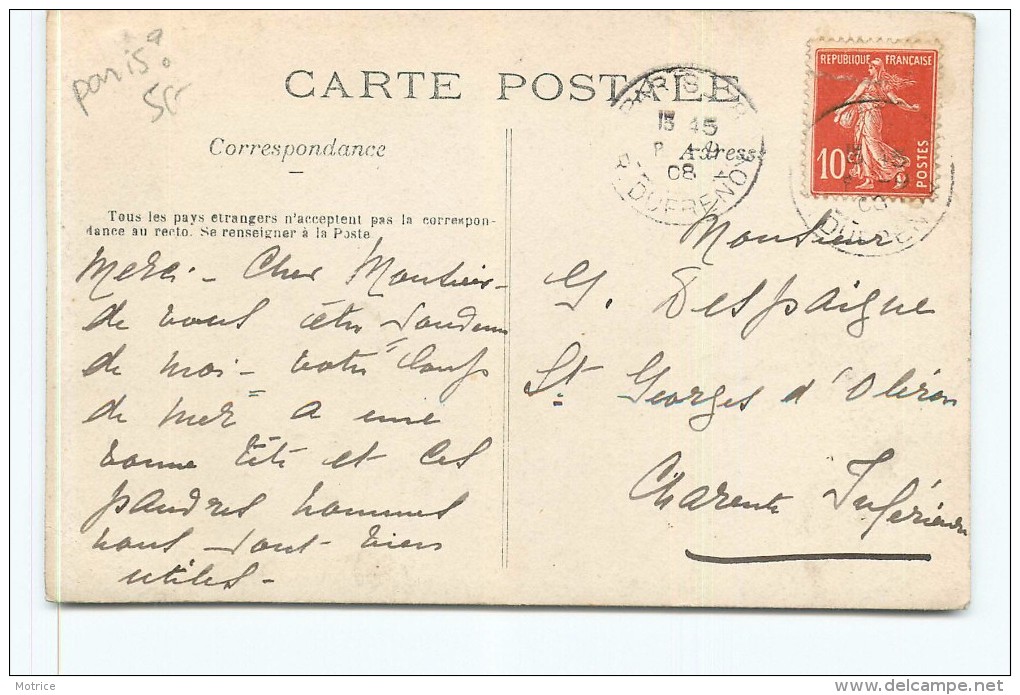 paris?
CARTE POSTALE
PARIS
15 45
P 9
08
R. DUFRENOY
REPUBLIQUE FRANCAISE
10 c
POSTES
Correspondance
Adresse
Tous les pays etrangers n'acceptent pas la correspon-
dance au recto. Se renseigner à la Poste
Merci - Cher Monsieur -
de vous être
de moi - votre loup
de mer a une
bonne tête et ces
hommes
nous sont bien
utiles -
Monsieur
G. Despaigne
St Georges d'Oléron
Charente Inférieure
© Motrice
delcampe.net